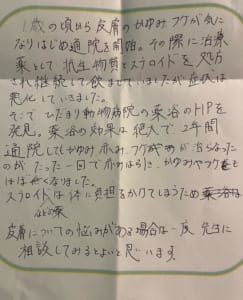 1歳の頃から皮膚のかゆみフケが気に
なりはじめ通院を開始。その際に治療
薬として抗生物質とステロイドを処方
され継続して飲ませていましたが症状は
悪化していきました。
そこでひだまり動物病院の薬浴のHPを
発見。薬浴の効果は絶大で、2年間
通院してもかゆみ、赤み、フケが治らなかった
のがたった一回で赤みはうすく、かゆみやフケも
ほぼ無くなりました。
ステロイドは体に負担をかけてしまうため
などの薬
皮膚についての悩みがある場合は一度先生に
相談してみるとよいと思います